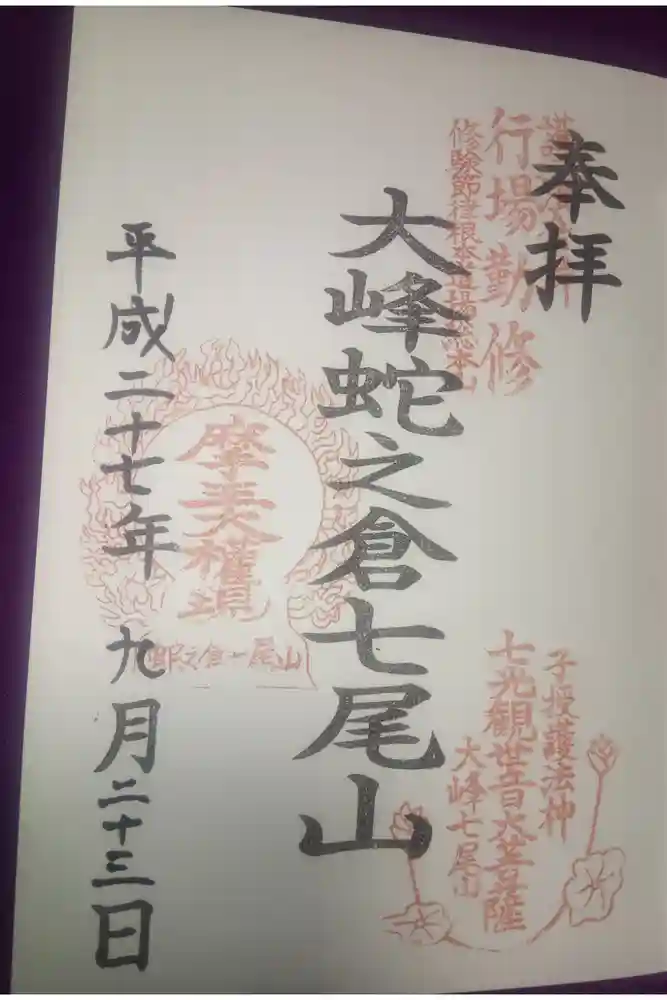 奉拝
行場勤修
修験節律根本道場総本山
大峰蛇之倉七尾山
子授護法神
七光観世音大菩薩
大峰七尾山
蛇之倉七尾山
平成二十七年九月二十三日